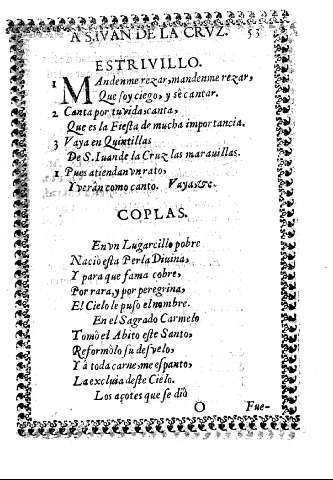 A S. IVAN DE LA CRVZ. 53
ESTRIVILLO.
1 Mandenme rezar, mandenme rezar,
Que soy ciego, y sè cantar.
2 Canta por tu vida, canta,
Que es la Fiesta de mucha importancia.
3 Vaya en Quintillas
De S. Iuan de la Cruz las marauillas.
1 Pues atiendan vn rato,
Y veràn como canto. Vaya, &c.
COPLAS.
En vn Lugarcillo pobre
Naciò esta Perla Diuina,
Y para que fama cobre,
Por rara, y por peregrina,
El Cielo le puso el nombre.
En el Sagrado Carmelo
Tomò el Abito este Santo,
Reformòlo su desvelo,
Y à toda carne, me espanto,
La excluìa deste Cielo.
Los açotes que se diò
O Fue-